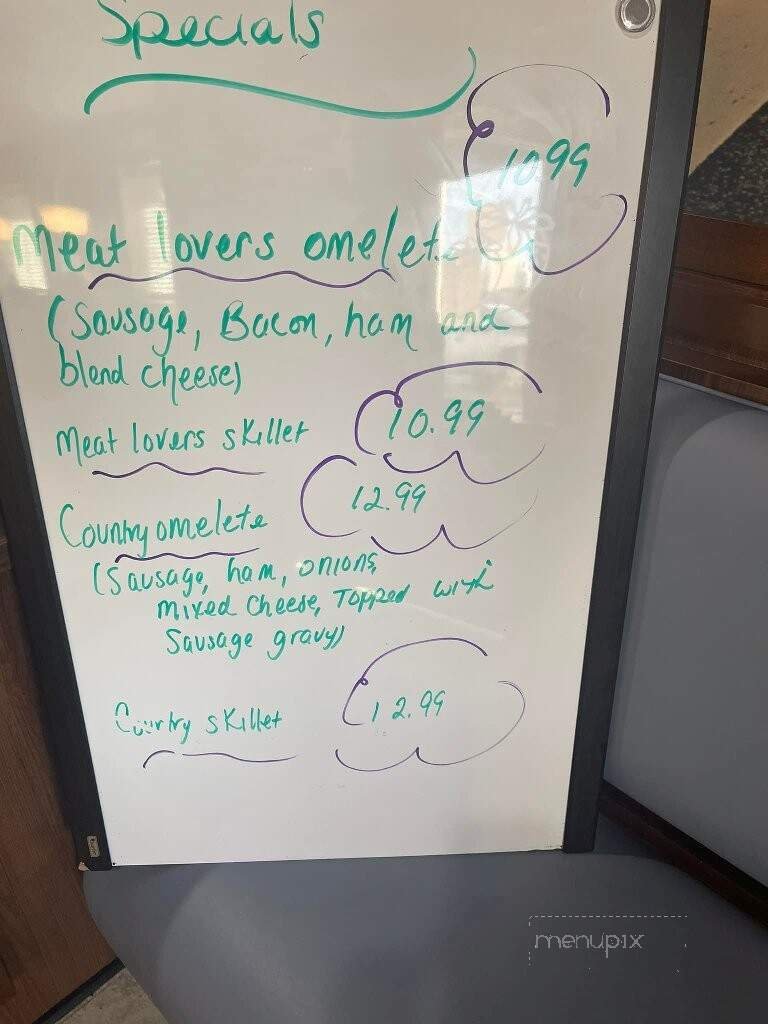 Specials
1099
Meat lovers omelete
(Sausage, Bacon, ham and
blend cheese)
Meat lovers skillet 10.99
Country omelete 12.99
(Sausage, ham, onions,
mixed cheese, Topped with
Sausage gravy)
Country skillet 12.99
menupix